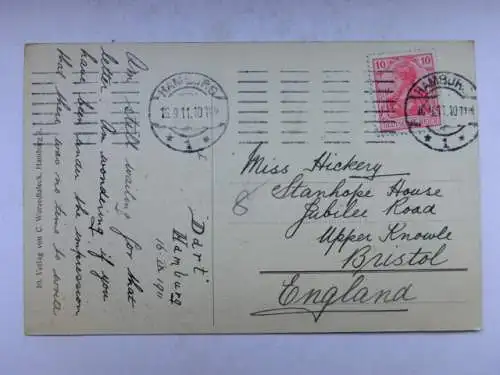 Am still waiting for that
letter. Am wondering if you
have been under the impression
that there was no time to write
Dart
Hamburg
16.IX.1911
HAMBURG
16.9.11.10-11V
* 1 *
10 10
HAMBURG
16.9.11.10-11V
* 1 *
Miss Hickery
Stanhope House
Jubilee Road
Upper Knowle
Bristol
England
8
Verlag von C. Worzedialeck, Hamburg